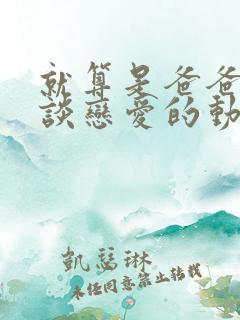 就算是爸爸
談戀愛的動
凱瑟琳
未經同意禁止轉載